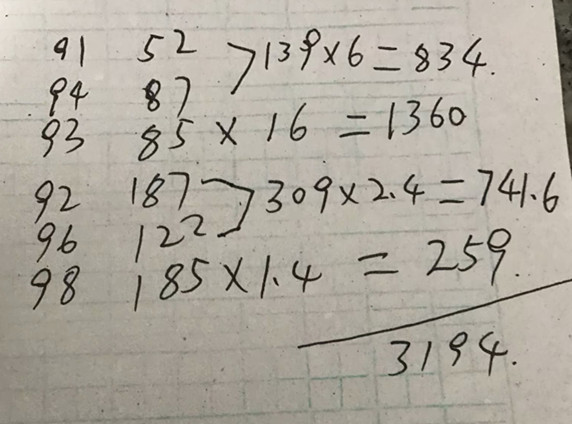 91 52
94 87 >139×6=834.
93 85 × 16 =1360
92 187
96 122 >309×2.4=741.6
98 185×1.4 = 259.
3194.